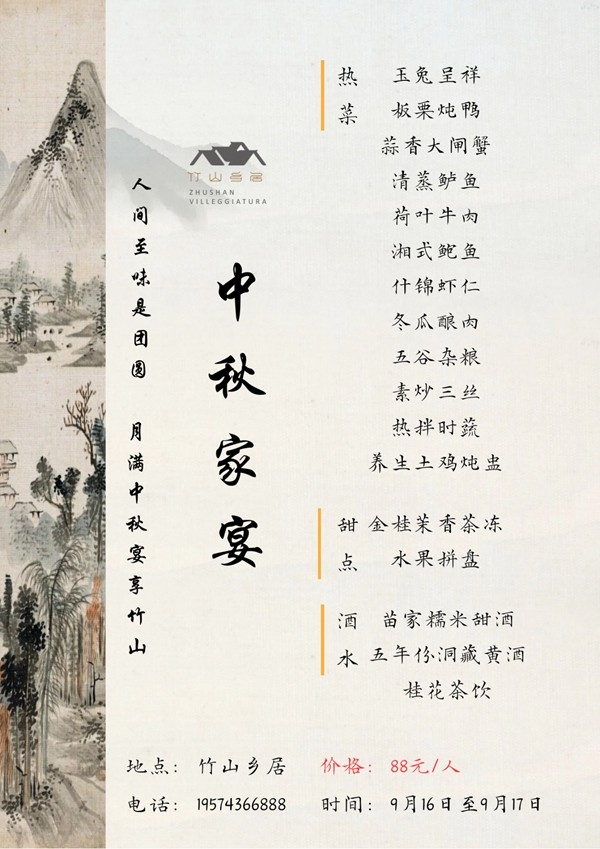 竹山乡居
ZHUSHAN
VILLEGGIATURA
人间至味是团圆 月满中秋宴享竹山
中秋家宴
热菜
玉兔呈祥
板栗炖鸭
蒜香大闸蟹
清蒸鲈鱼
荷叶牛肉
湘式鲍鱼
什锦虾仁
冬瓜酿肉
五谷杂粮
素炒三丝
热拌时蔬
养生土鸡炖盅
甜点
金桂茉香茶冻
水果拼盘
酒水
苗家糯米甜酒
五年份洞藏黄酒
桂花茶饮
地点：竹山乡居 价格：88元/人
电话：19574366888 时间：9月16日至9月17日